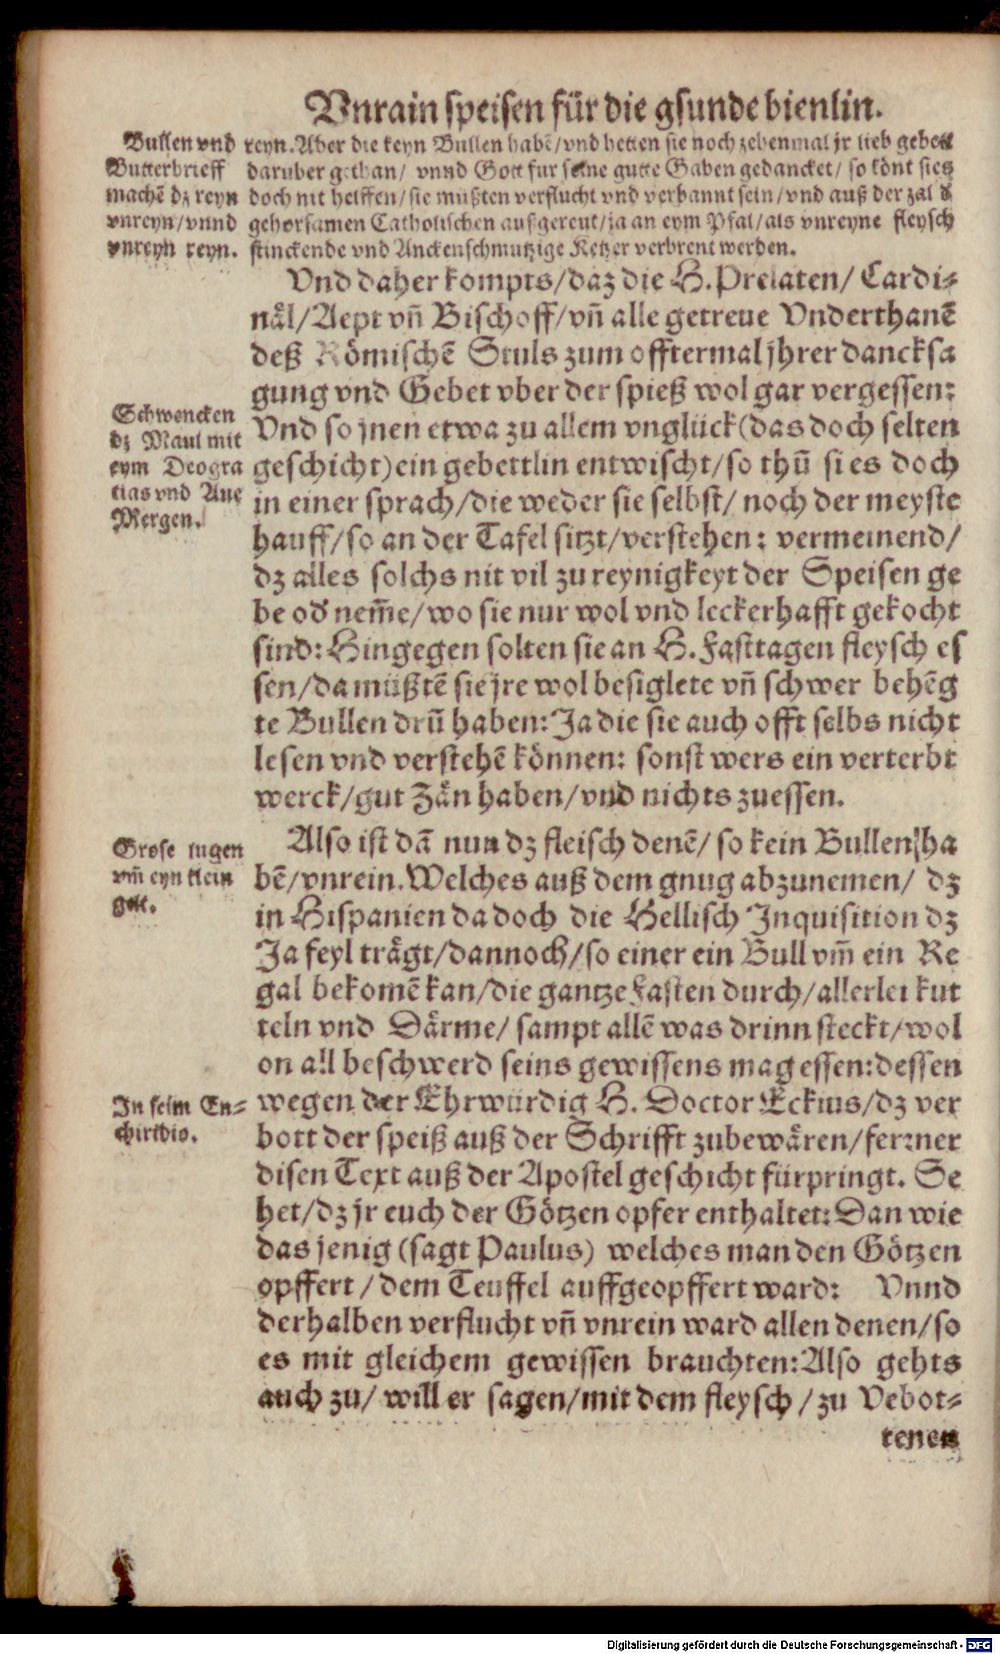 Vnrain speisen für die gsunde bienlin.
Bullen vnd
Butterbrieff
machẽ dz reyn
vnreyn/vnnd
vnreyn reyn.
reyn. Aber die keyn Bullen habẽ/vnd hetten sie noch zehenmal jr lieb gebett
darüber gethan/ vnnd Gott für seine gutte Gaben gedancket/ so könt sies
doch nit helffen/sie müßten verflucht vnd verbannt sein/vnd auß der zal d
gehorsamen Catholischen außgereut/ja an eym Pfal/als vnreyne fleysch
stinckende vnd Anckenschmutzige Ketzer verbrent werden.
Vnd daher kompts/daz die H. Prelaten/ Cardi-
näl/Aept vñ Bischoff/vñ alle getreue Vnderthanẽ
deß Römischẽ Stuls zum offtermal jhrer dancksa
gung vnd Gebet vber der spieß wol gar vergessen:
Schwencken
dz Maul mit
eym Deogra
tias vnd Aue
Mergen.
Vnd so jnen etwa zu allem vnglück (das doch selten
geschicht) ein gebettlin entwischt/so thũ sies doch
in einer sprach/die weder sie selbst/ noch der meyste
hauff/so an der Tafel sitzt/verstehen: vermeinend/
dz alles solchs nit vil zu reynigkeyt der Speisen ge
be od nem̃e/wo sie nur wol vnd leckerhafft gekocht
sind: Hingegen solten sie an H. Fasttagen fleysch es
sen/da müßtẽ sie jre wol besiglete vñ schwer behẽg
te Bullen drũ haben: Ja die sie auch offt selbs nicht
lesen vnd verstehẽ können: sonst wers ein verterbt
werck/gut Zän haben/vnd nichts zuessen.
Grose lugen
vm̃ eyn klein
gelt.
Also ist dã nun dz fleisch denẽ/ so kein Bullen ha
bẽ/vnrein. Welches auß dem gnug abzunemen/ dz
in Hispanien da doch die Hellisch Inquisition dz
Ja feyl trägt/dannoch/so einer ein Bull vm̃ ein Re
gal bekomẽ kan/die gantze Fasten durch/allerlei kut
teln vnd Därme/ sampt allẽ was drinn steckt/wol
on all beschwerd seins gewissens mag essen: dessen
In seim En-
chiridio.
wegen der Ehrwürdig H. Doctor Eckius/dz ver
bott der speiß auß der Schrifft zubewären/ferrner
disen Text auß der Apostel geschicht fürpringt. Se
het/dz jr euch der Götzen opfer enthaltet: Dan wie
das jenig (sagt Paulus) welches man den Götzen
opffert/dem Teuffel auffgeopffert ward: Vnnd
derhalben verflucht vñ vnrein ward allen denen/so
es mit gleichem gewissen brauchten: Also gehts
auch zu/ will er sagen/mit dem fleysch/zu Vebot-
tenen
Digitalisierung gefördert durch die Deutsche Forschungsgemeinschaft - DFG